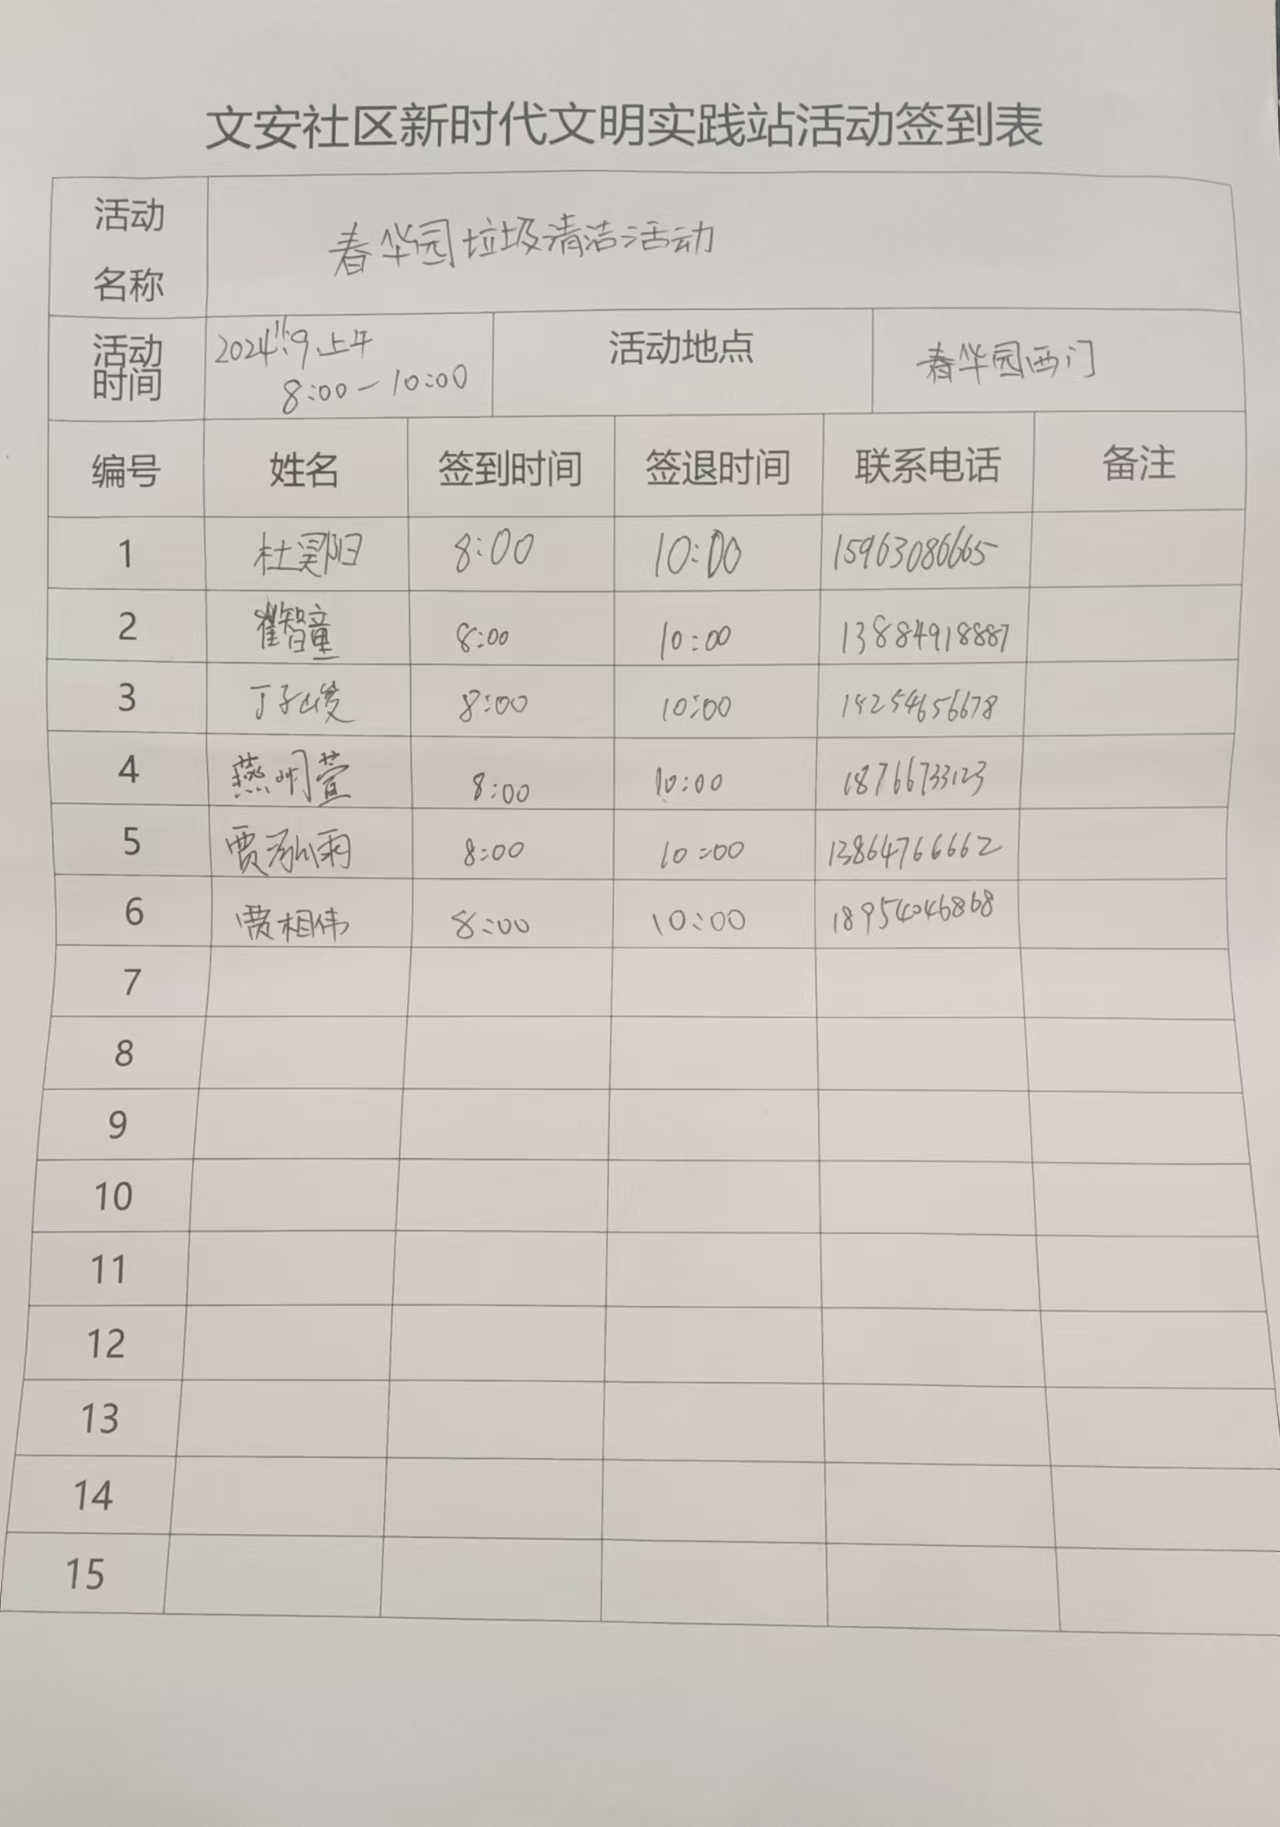 文安社区新时代文明实践站活动签到表
活动名称 春华园垃圾清洁活动
活动时间 2024.11.9上午 8:00—10:00 活动地点 春华园西门
编号 姓名 签到时间 签退时间 联系电话 备注
1 杜昊阳 8:00 10:00 15963086665
2 翟智童 8:00 10:00 13884918887
3 丁子峻 8:00 10:00 15254656678
4 燕明萱 8:00 10:00 18766733123
5 贾泓雨 8:00 10:00 13864766662
6 贾相伟 8:00 10:00 18954046868
7
8
9
10
11
12
13
14
15